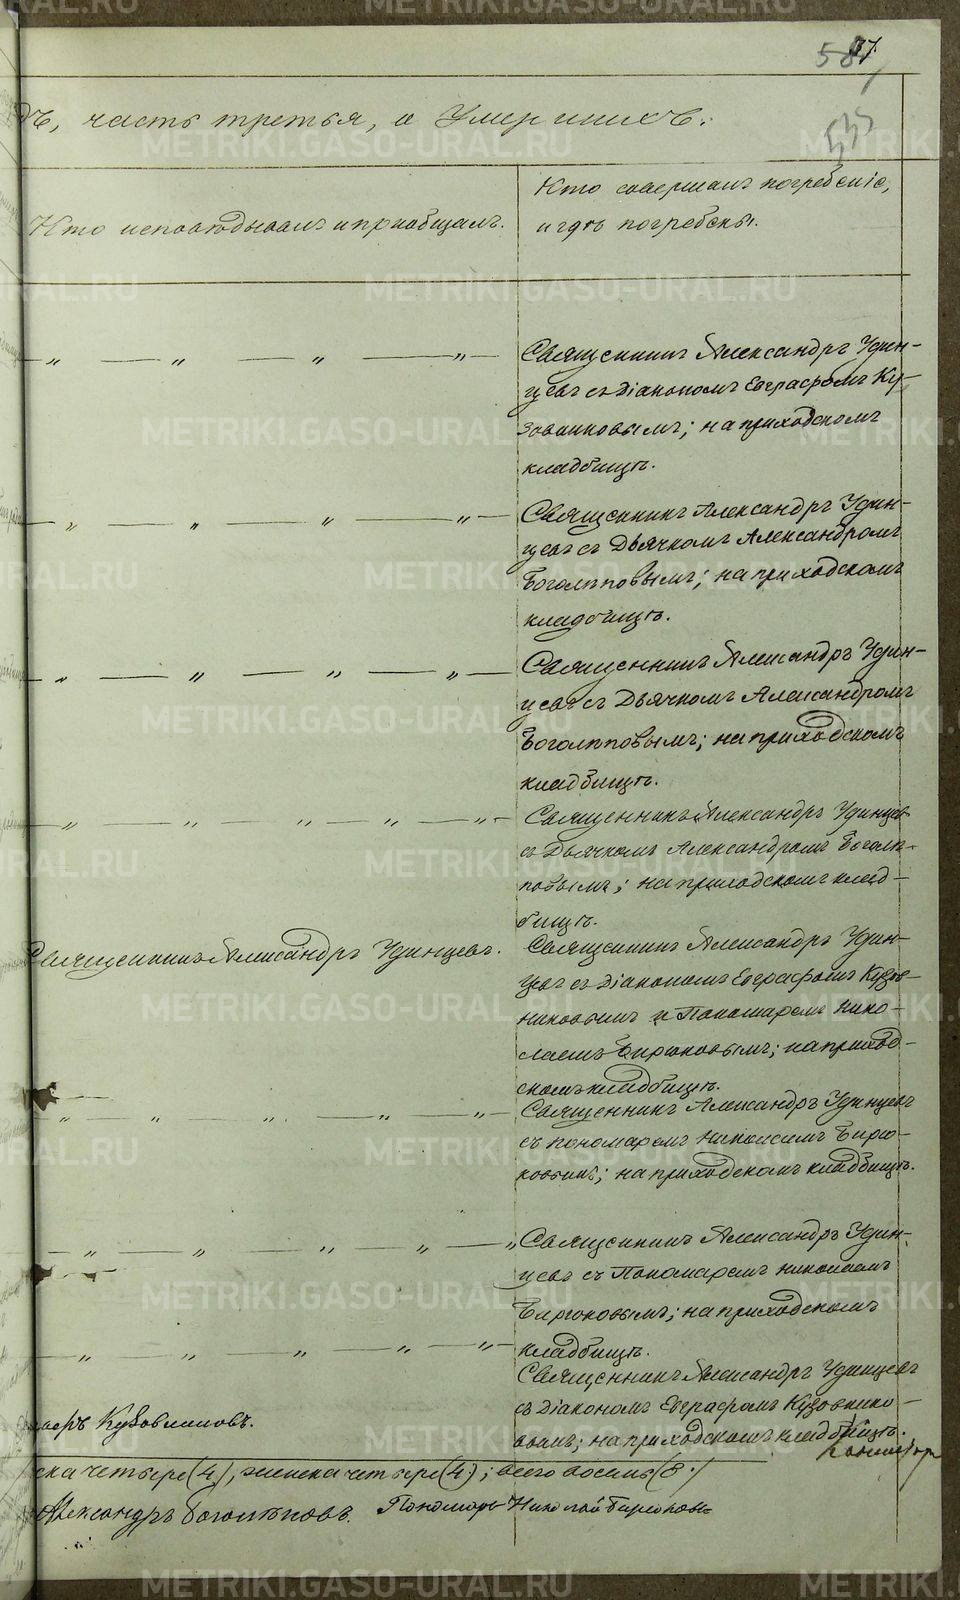 587
37.
535
дѣ, часть третья, о Умершихъ:
Кто исповѣдывалъ и приобщалъ.
Кто совершалъ погребеніе,
и гдѣ погребены.
— „ — „ — „ — „ —
Священникъ Александръ Удин-
цевъ съ Діакономъ Евграфомъ Ку-
зовниковымъ; на приходскомъ
кладбищѣ.
— „ — „ — „ — „ —
Священникъ Александръ Удин-
цевъ съ Дьячкомъ Александромъ
Боголѣповымъ; на приходскомъ
кладбищѣ.
— „ — „ — „ — „ —
Священникъ Александръ Удин-
цевъ съ Дьячкомъ Александромъ
Боголѣповымъ; на приходскомъ
кладбищѣ.
— „ — „ — „ — „ — „ —
Священникъ Александръ Удинцев
съ Дьячкомъ Александромъ Боголѣ-
повымъ; на приходскомъ клад-
бищѣ.
Священникъ Александръ Удинцевъ.
Священникъ Александръ Удин-
цевъ съ Діакономъ Евграфомъ Кузов-
никовымъ и Пономаремъ Нико-
лаемъ Бирюковымъ; на приход-
скомъ кладбищѣ.
„ — „ — „ — „ — „ —
Священникъ Александръ Удинцевъ
съ пономаремъ Николаемъ Бирю-
ковымъ; на приходскомъ кладбищѣ.
— „ — „ — „ — „ — „
Священникъ Александръ Удин-
цевъ съ Пономаремъ Николаемъ
Бирюковымъ; на приходскомъ
кладбищѣ.
— „ — „ — „ — „ — „ —
Священникъ Александръ Удинцевъ
съ Діакономъ Евграфомъ Кузовнико-
вымъ; на приходскомъ кладбищѣ.
Кузовниковъ.
ска четыре (4), женска четыре (4); всего восемь (8.)
Александръ Боголѣповъ. Пономарь Николай Бирюковъ
METRIKI.GASO-URAL.RU